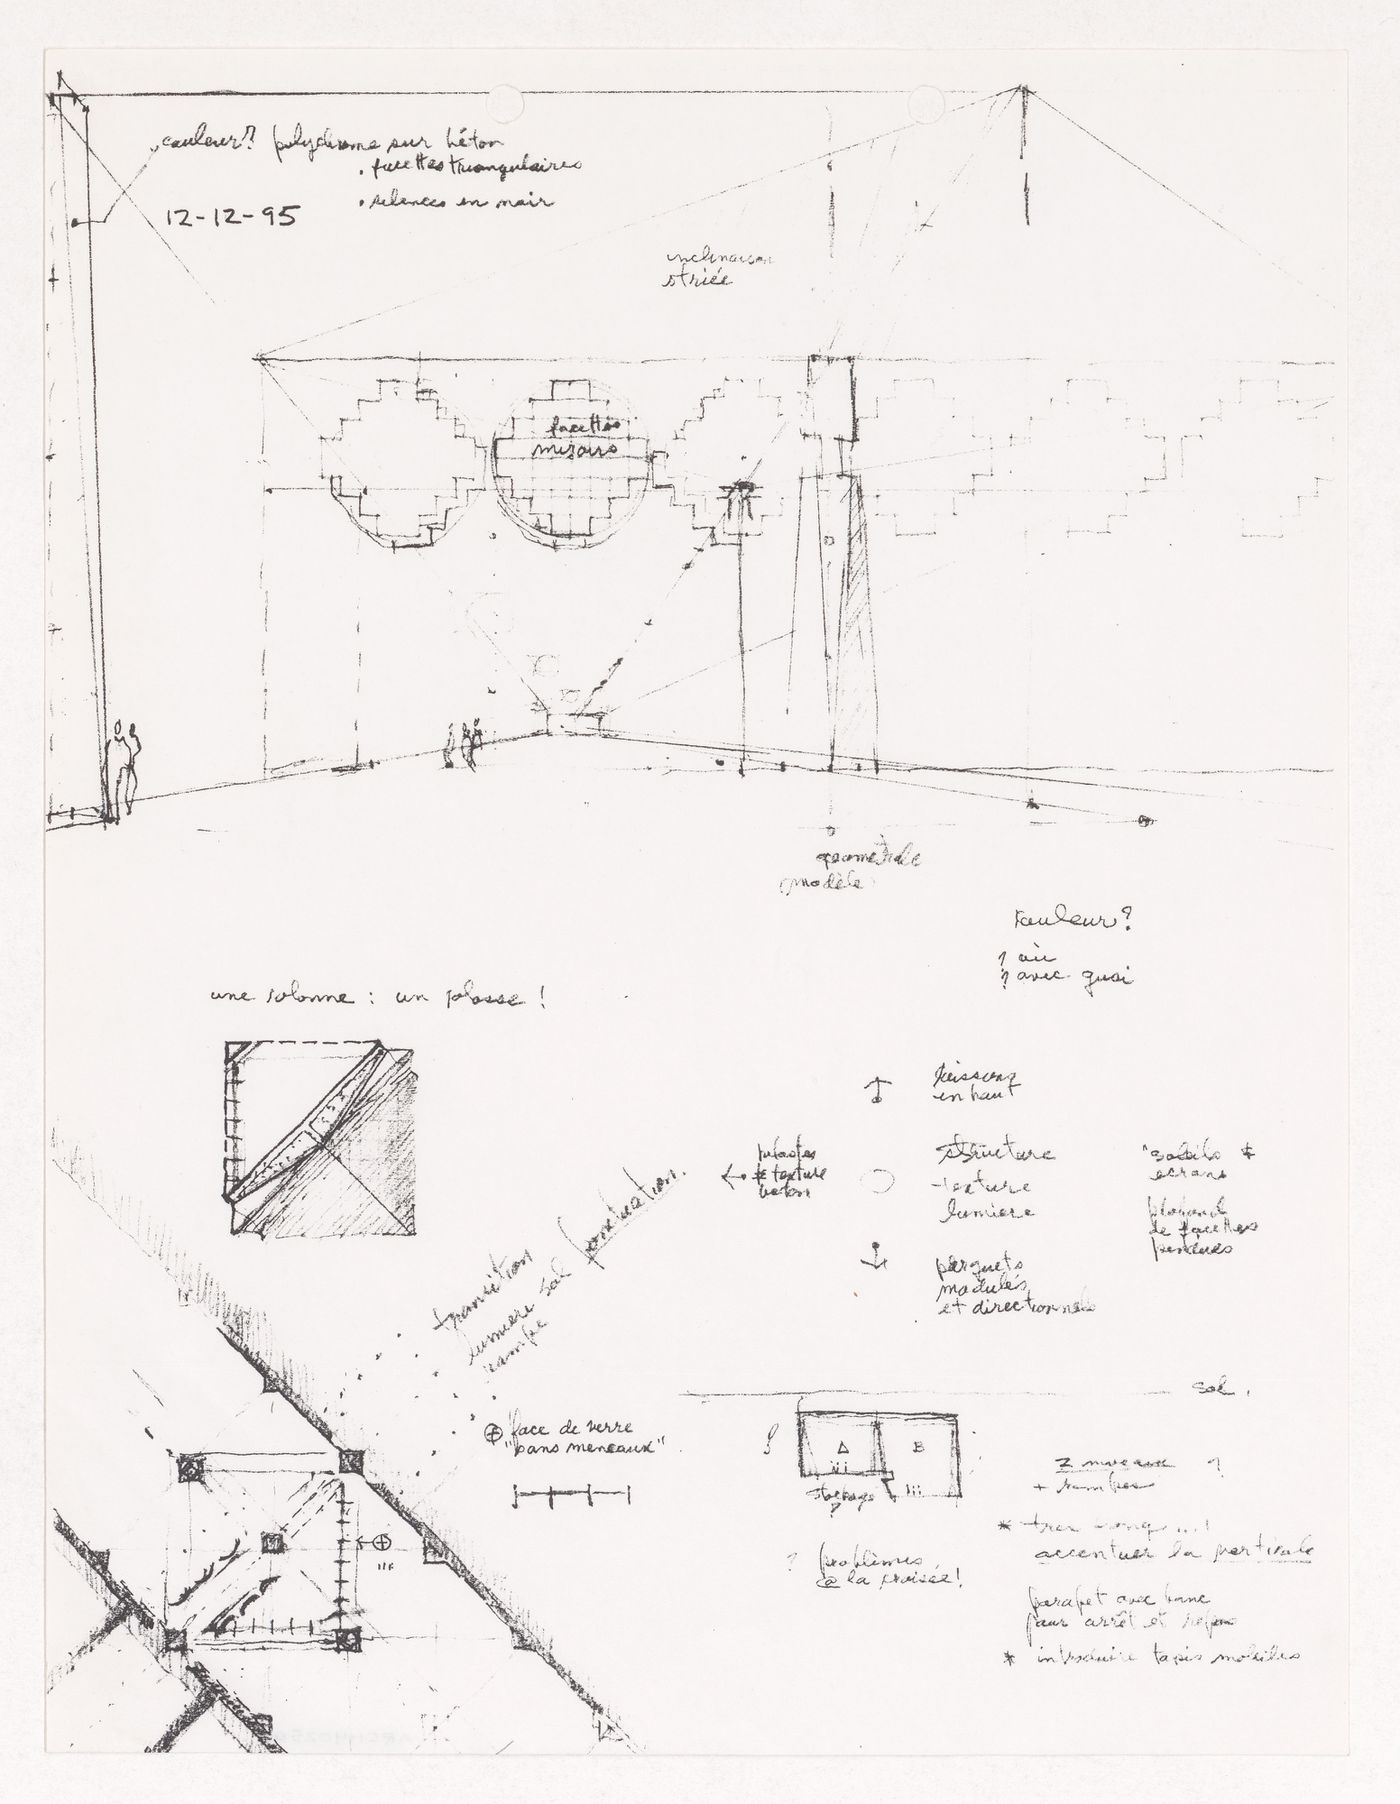 couleur? polychrome sur béton
• facettes triangulaires
• silences en noir
12-12-95
inclinaison
striée
facettes
miroirs
géométrale
modèle
couleur?
? où
? avec quoi
une colonne : un plosse !
en haut
structure
texture
lumiere
texture
béton
"soleils *
ecrans
plafond
de facettes
perdues
parquets
modulés
et directionnels
transition
lumiere sol ponctuation.
rampe
⊕ face de verre
"sans meneaux"
sol.
A
B
stockage
?
2 niveaux ?
+ rampes
? problèmes
@ la croisée!
*
accentuer la verticale
parapet avec banc
pour arrêt et repos
* introduire tapis mobiles